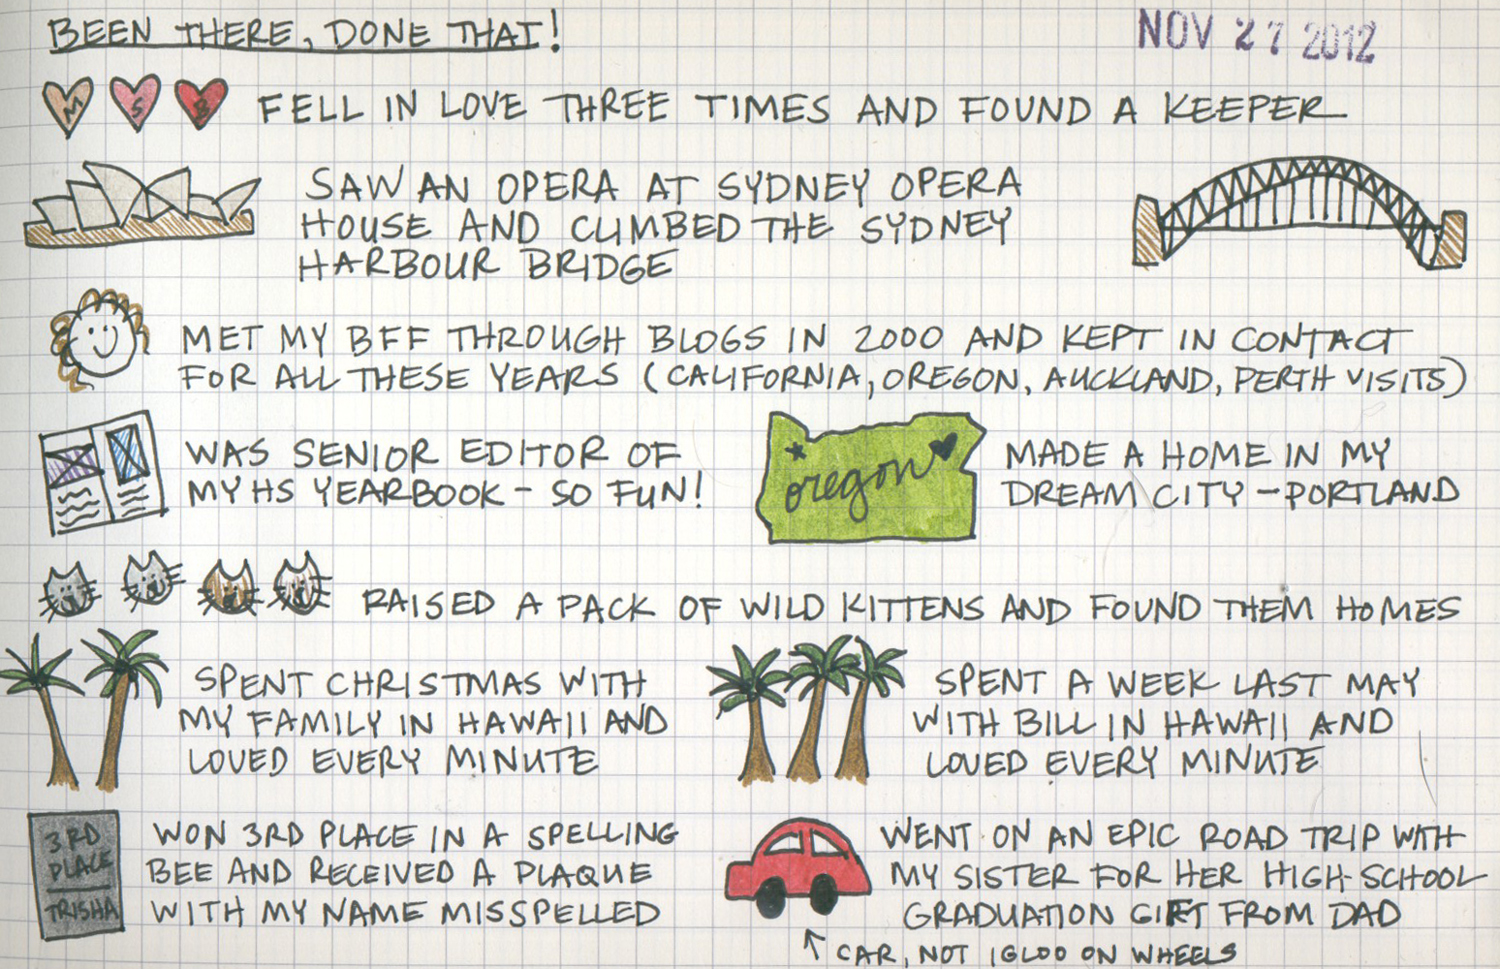 BEEN THERE, DONE THAT!
NOV 27 2012
M S B
FELL IN LOVE THREE TIMES AND FOUND A KEEPER
SAW AN OPERA AT SYDNEY OPERA
HOUSE AND CLIMBED THE SYDNEY
HARBOUR BRIDGE
MET MY BFF THROUGH BLOGS IN 2000 AND KEPT IN CONTACT
FOR ALL THESE YEARS (CALIFORNIA, OREGON, AUCKLAND, PERTH VISITS)
WAS SENIOR EDITOR OF
MY HS YEARBOOK - SO FUN!
oregon
MADE A HOME IN MY
DREAM CITY - PORTLAND
RAISED A PACK OF WILD KITTENS AND FOUND THEM HOMES
SPENT CHRISTMAS WITH
MY FAMILY IN HAWAII AND
LOVED EVERY MINUTE
SPENT A WEEK LAST MAY
WITH BILL IN HAWAII AND
LOVED EVERY MINUTE
3RD
PLACE
TRISHA
WON 3RD PLACE IN A SPELLING
BEE AND RECEIVED A PLAQUE
WITH MY NAME MISSPELLED
WENT ON AN EPIC ROAD TRIP WITH
MY SISTER FOR HER HIGH-SCHOOL
GRADUATION GIFT FROM DAD
CAR, NOT IGLOO ON WHEELS